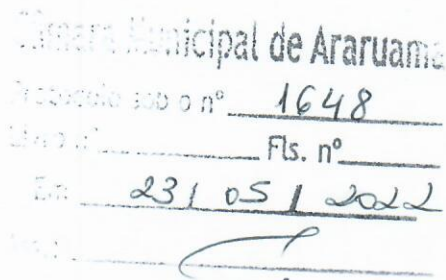 Câmara Municipal de Araruama
Protocolo sob o nº 1648
Livro nº Fls. nº
Em 23/05/2022